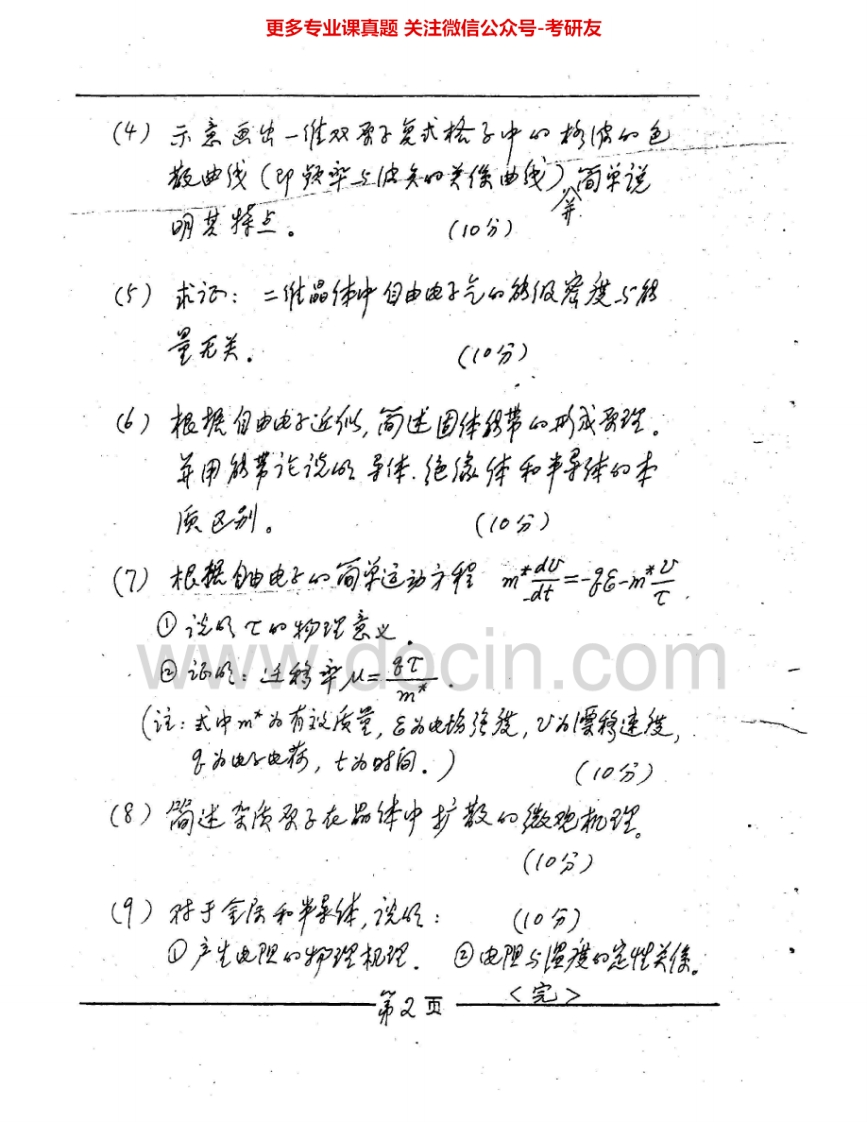 更多专业课真题 关注微信公众号-考研友
(4) 示意画出一维双原子复式格子中的格波的色
散曲线(即频率与波矢的关系曲线),并简单说
明其特点。 (10分)
(5) 求证:二维晶体中自由电子气的能级密度与能
量无关. (10分)
(6) 根据自由电子近似,简述固体能带的形成原理.
并用能带论说明导体.绝缘体和半导体的本
质区别。 (10分)
(7) 根据自由电子的简单运动方程 m*dv/dt=-qε-m*v/τ.
①说明τ的物理意义.
②证明:迁移率μ=qτ/m*.
www.docin.com
(注:式中m*为有效质量,ε为电场强度,v为漂移速度,
q为电子电荷,t为时间.)
(10分)
(8) 简述杂质原子在晶体中扩散的微观机理.
(10分)
(9) 对于金属和半导体,说明: (10分)
①产生电阻的物理机理. ②电阻与温度的定性关系.
第2页 <完>